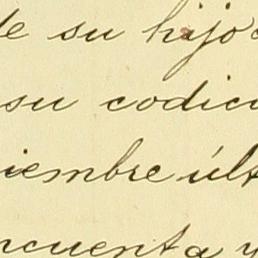 de su hijo
su codici
iembre últ
ncuenta y